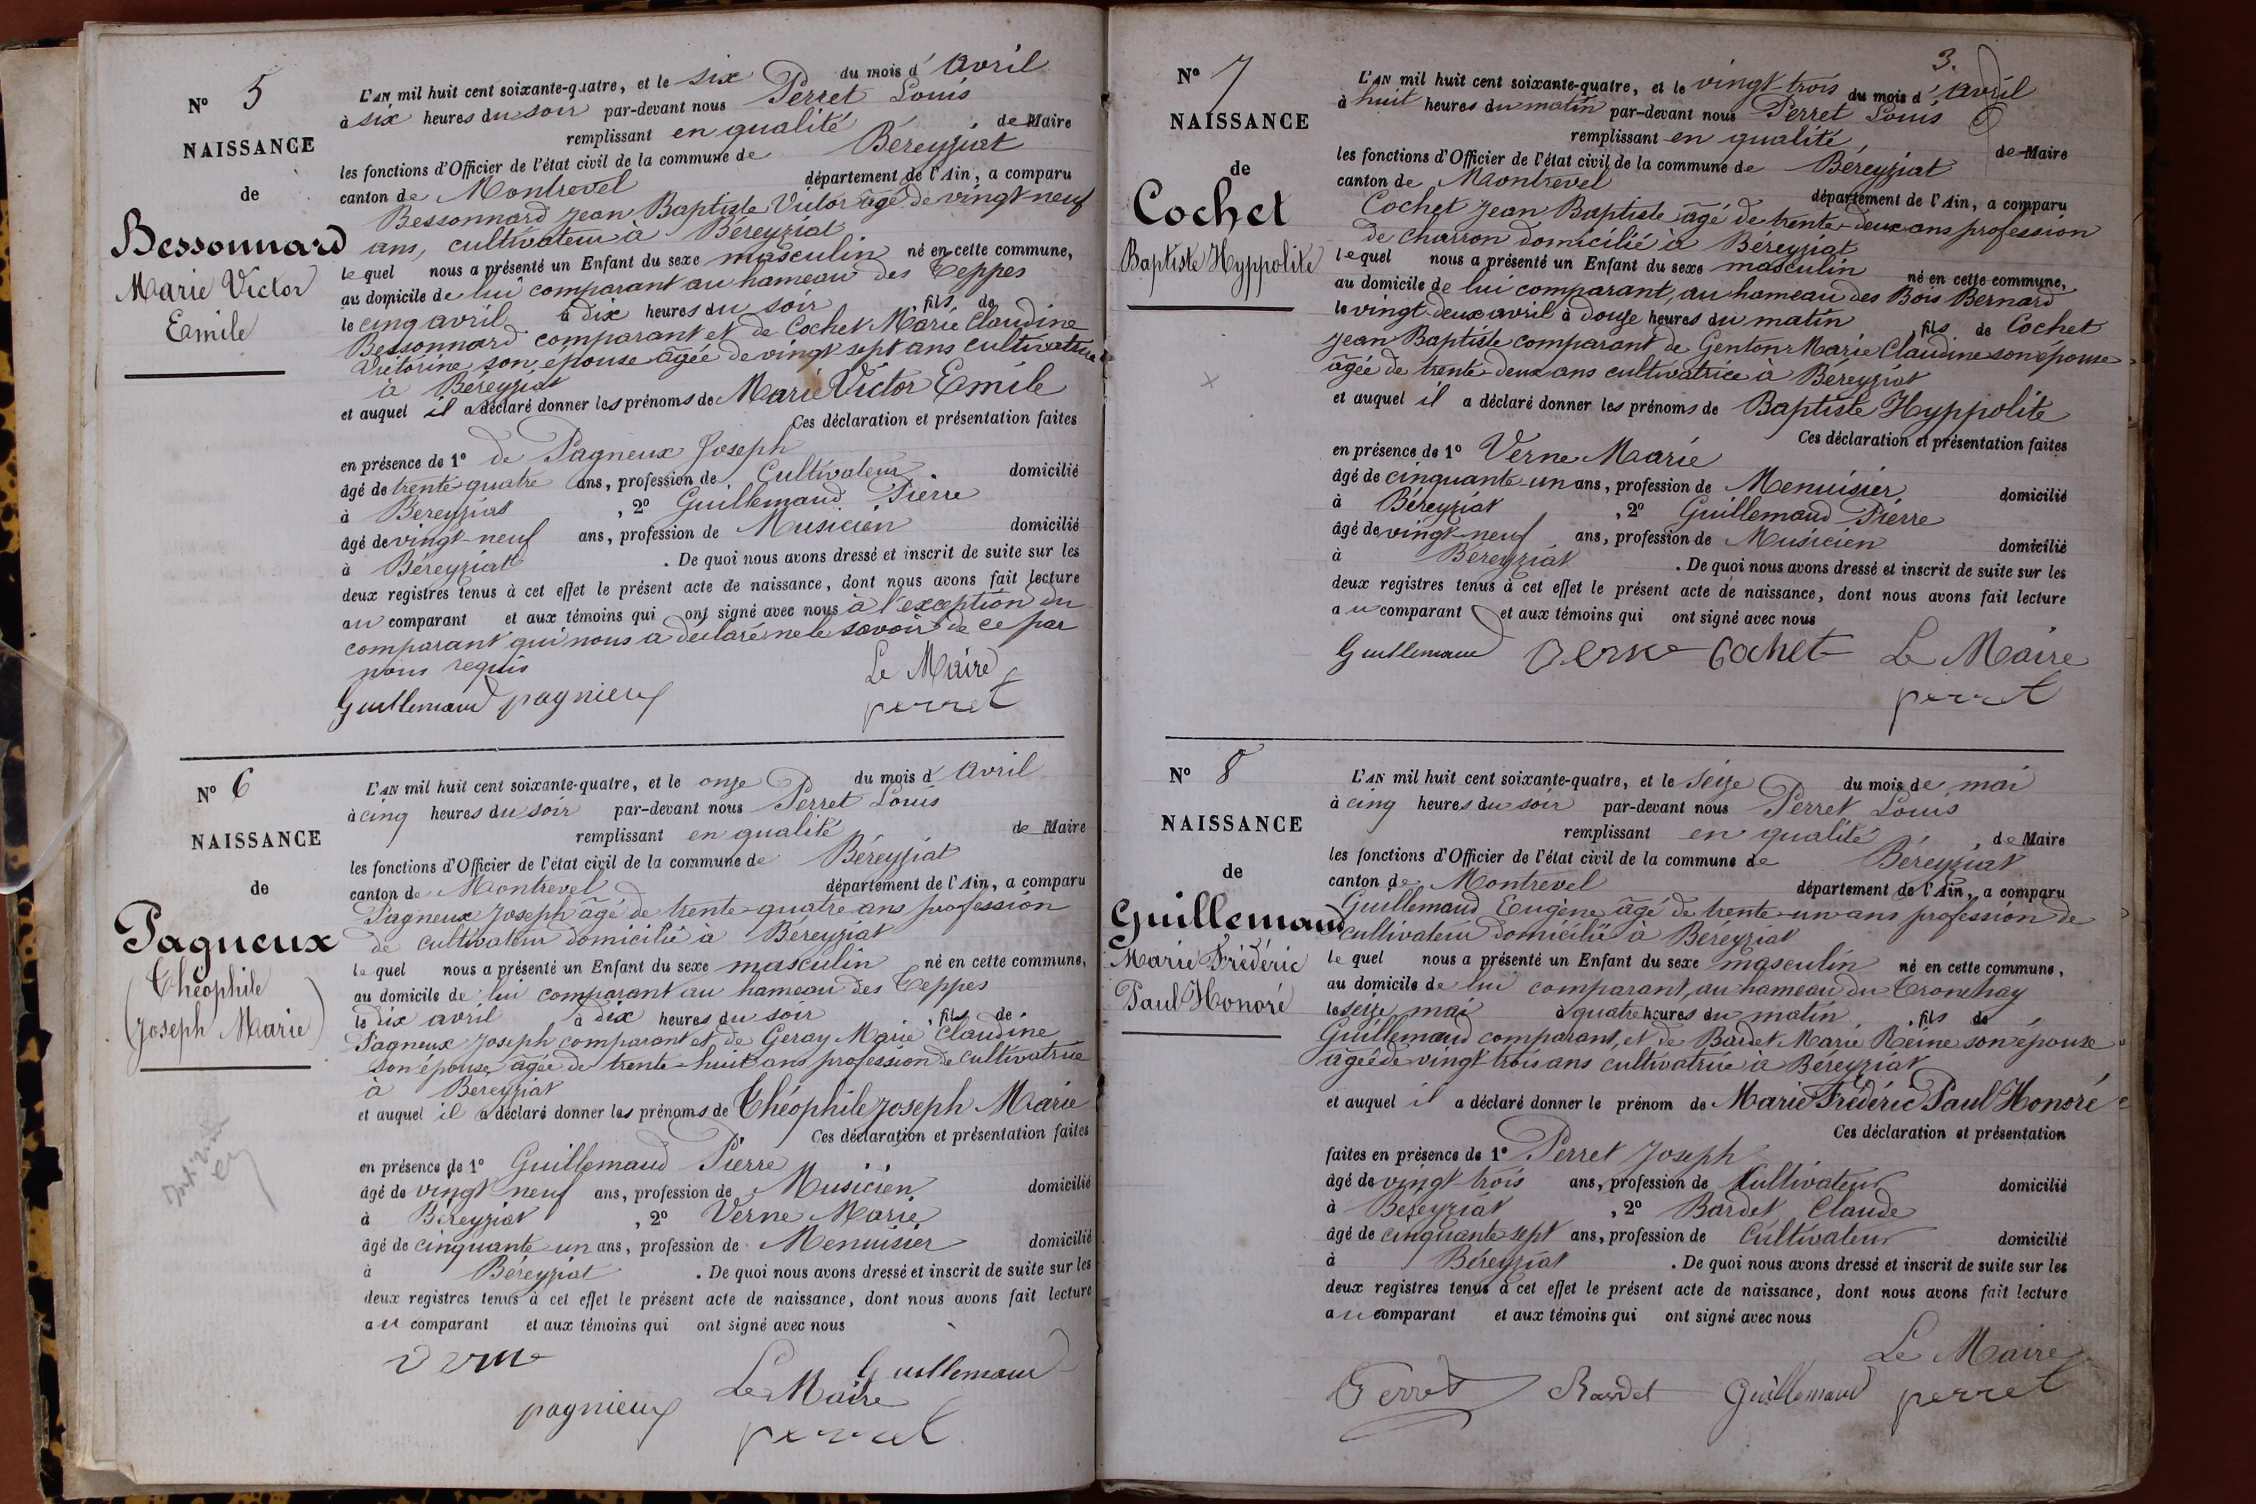 N° 5
NAISSANCE
de
Bessonnard
Marie Victor
Emile
L'AN mil huit cent soixante-quatre, et le six du mois d'avril
à six heures du soir par-devant nous Perret Louis
remplissant en qualité de Maire
les fonctions d'Officier de l'état civil de la commune de Béreyziat
canton de Montrevel département de l'Ain, a comparu
Bessonnard Jean Baptiste Victor âgé de vingt neuf
ans, cultivateur à Béreyziat
lequel nous a présenté un Enfant du sexe masculin né en cette commune,
au domicile de lui comparant au hameau des Teppes
le cinq avril à dix heures du soir, fils de
Bessonnard comparant et de Cochet Marie Claudine
Victorine son épouse âgée de vingt sept ans cultivatrice
à Béreyziat
et auquel il a déclaré donner les prénoms de Marie Victor Emile
Ces déclaration et présentation faites
en présence de 1° de Pagneux Joseph
âgé de trente-quatre ans, profession de Cultivateur domicilié
à Béreyziat, 2° Guillemaud Pierre
âgé de vingt-neuf ans, profession de Musicien domicilié
à Béreyziat. De quoi nous avons dressé et inscrit de suite sur les
deux registres tenus à cet effet le présent acte de naissance, dont nous avons fait lecture
au comparant et aux témoins qui ont signé avec nous à l'exception du
comparant qui nous a déclaré ne le savoir de ce par
nous requis
Le Maire
Guillemaud pagnieux perret
N° 6
NAISSANCE
de
Pagneux
Théophile
(Joseph Marie)
L'AN mil huit cent soixante-quatre, et le onze du mois d'avril
à cinq heures du soir par-devant nous Perret Louis
remplissant en qualité de Maire
les fonctions d'Officier de l'état civil de la commune de Béreyziat
canton de Montrevel département de l'Ain, a comparu
Pagneux Joseph âgé de trente-quatre ans profession
de cultivateur domicilié à Béreyziat
lequel nous a présenté un Enfant du sexe masculin né en cette commune,
au domicile de lui comparant au hameau des Teppes
le dix avril à dix heures du soir, fils de
Pagneux Joseph comparant et de Geray Marie Claudine
son épouse, âgée de trente-huit ans profession de cultivatrice
à Bereyziat
et auquel il a déclaré donner les prénoms de Théophile Joseph Marie
Ces déclaration et présentation faites
en présence de 1° Guillemaud Pierre
âgé de vingt neuf ans, profession de Musicien domicilié
à Béreyziat, 2° Verne Marie
âgé de cinquante un ans, profession de Menuisier domicilié
à Béreyziat. De quoi nous avons dressé et inscrit de suite sur les
deux registres tenus à cet effet le présent acte de naissance, dont nous avons fait lecture
au comparant et aux témoins qui ont signé avec nous
verne Guillemaud
Le Maire
pagnieux
perret
3.
N° 7
NAISSANCE
de
Cochet
Baptiste Hyppolite
L'AN mil huit cent soixante-quatre, et le vingt-trois du mois d'avril
à huit heures du matin par-devant nous Perret Louis
remplissant en qualité de Maire
les fonctions d'Officier de l'état civil de la commune de Béreyziat
canton de Montrevel département de l'Ain, a comparu
Cochet Jean Baptiste âgé de trente-deux ans profession
de charron domicilié à Béreyziat
lequel nous a présenté un Enfant du sexe masculin né en cette commune,
au domicile de lui comparant, au hameau des Bois Bernard
le vingt-deux avril à douze heures du matin, fils de Cochet
Jean Baptiste comparant de Genton Marie Claudine son épouse
âgée de trente-deux ans cultivatrice à Béreyziat
et auquel il a déclaré donner les prénoms de Baptiste Hyppolite
Ces déclaration et présentation faites
en présence de 1° Verne Marie
âgé de cinquante-un ans, profession de Menuisier domicilié
à Béreyziat, 2° Guillemaud Pierre
âgé de vingt-neuf ans, profession de Musicien domicilié
à Béreyziat. De quoi nous avons dressé et inscrit de suite sur les
deux registres tenus à cet effet le présent acte de naissance, dont nous avons fait lecture
au comparant et aux témoins qui ont signé avec nous
Guillemaud verne Cochet Le Maire
perret
N° 8
NAISSANCE
de
Guillemaud
Marie Frédéric
Paul Honoré
L'AN mil huit cent soixante-quatre, et le seize du mois de mai
à cinq heures du soir par-devant nous Perret Louis
remplissant en qualité de Maire
les fonctions d'Officier de l'état civil de la commune de Béreyziat
canton de Montrevel département de l'Ain, a comparu
Guillemaud Eugène âgé de trente-un ans profession de
cultivateur domicilié à Béreyziat
lequel nous a présenté un Enfant du sexe masculin né en cette commune,
au domicile de lui comparant, au hameau du Tronchay
le seize mai à quatre heures du matin, fils de
Guillemaud comparant, et de Bardet Marie Reine son épouse
âgée de vingt trois ans cultivatrice à Béreyziat
et auquel il a déclaré donner le prénom de Marie Frédéric Paul Honoré
Ces déclaration et présentation
faites en présence de 1° Perret Joseph
âgé de vingt-trois ans, profession de Cultivateur domicilié
à Béreyziat, 2° Bardet Claude
âgé de cinquante sept ans, profession de Cultivateur domicilié
à Béreyziat. De quoi nous avons dressé et inscrit de suite sur les
deux registres tenus à cet effet le présent acte de naissance, dont nous avons fait lecture
au comparant et aux témoins qui ont signé avec nous
Le Maire
Perret Bardet Guillemaud perret